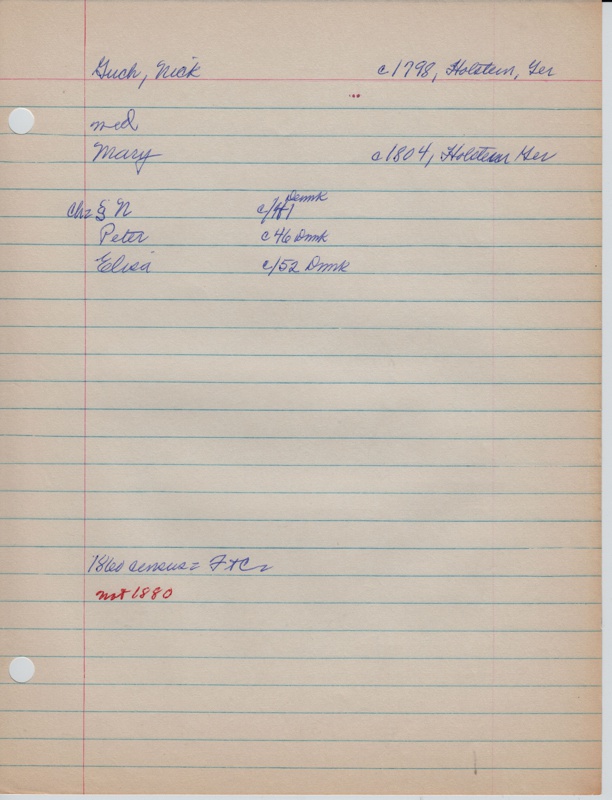 Guch, Nick c1798, Holstein, Ger
md
Mary c1804, Holstein Ger
Ch= § N c/41 Denmk
Peter c46 Dnmk
Elisa c/52 Dnmk
1860 census = F+C=
not 1880